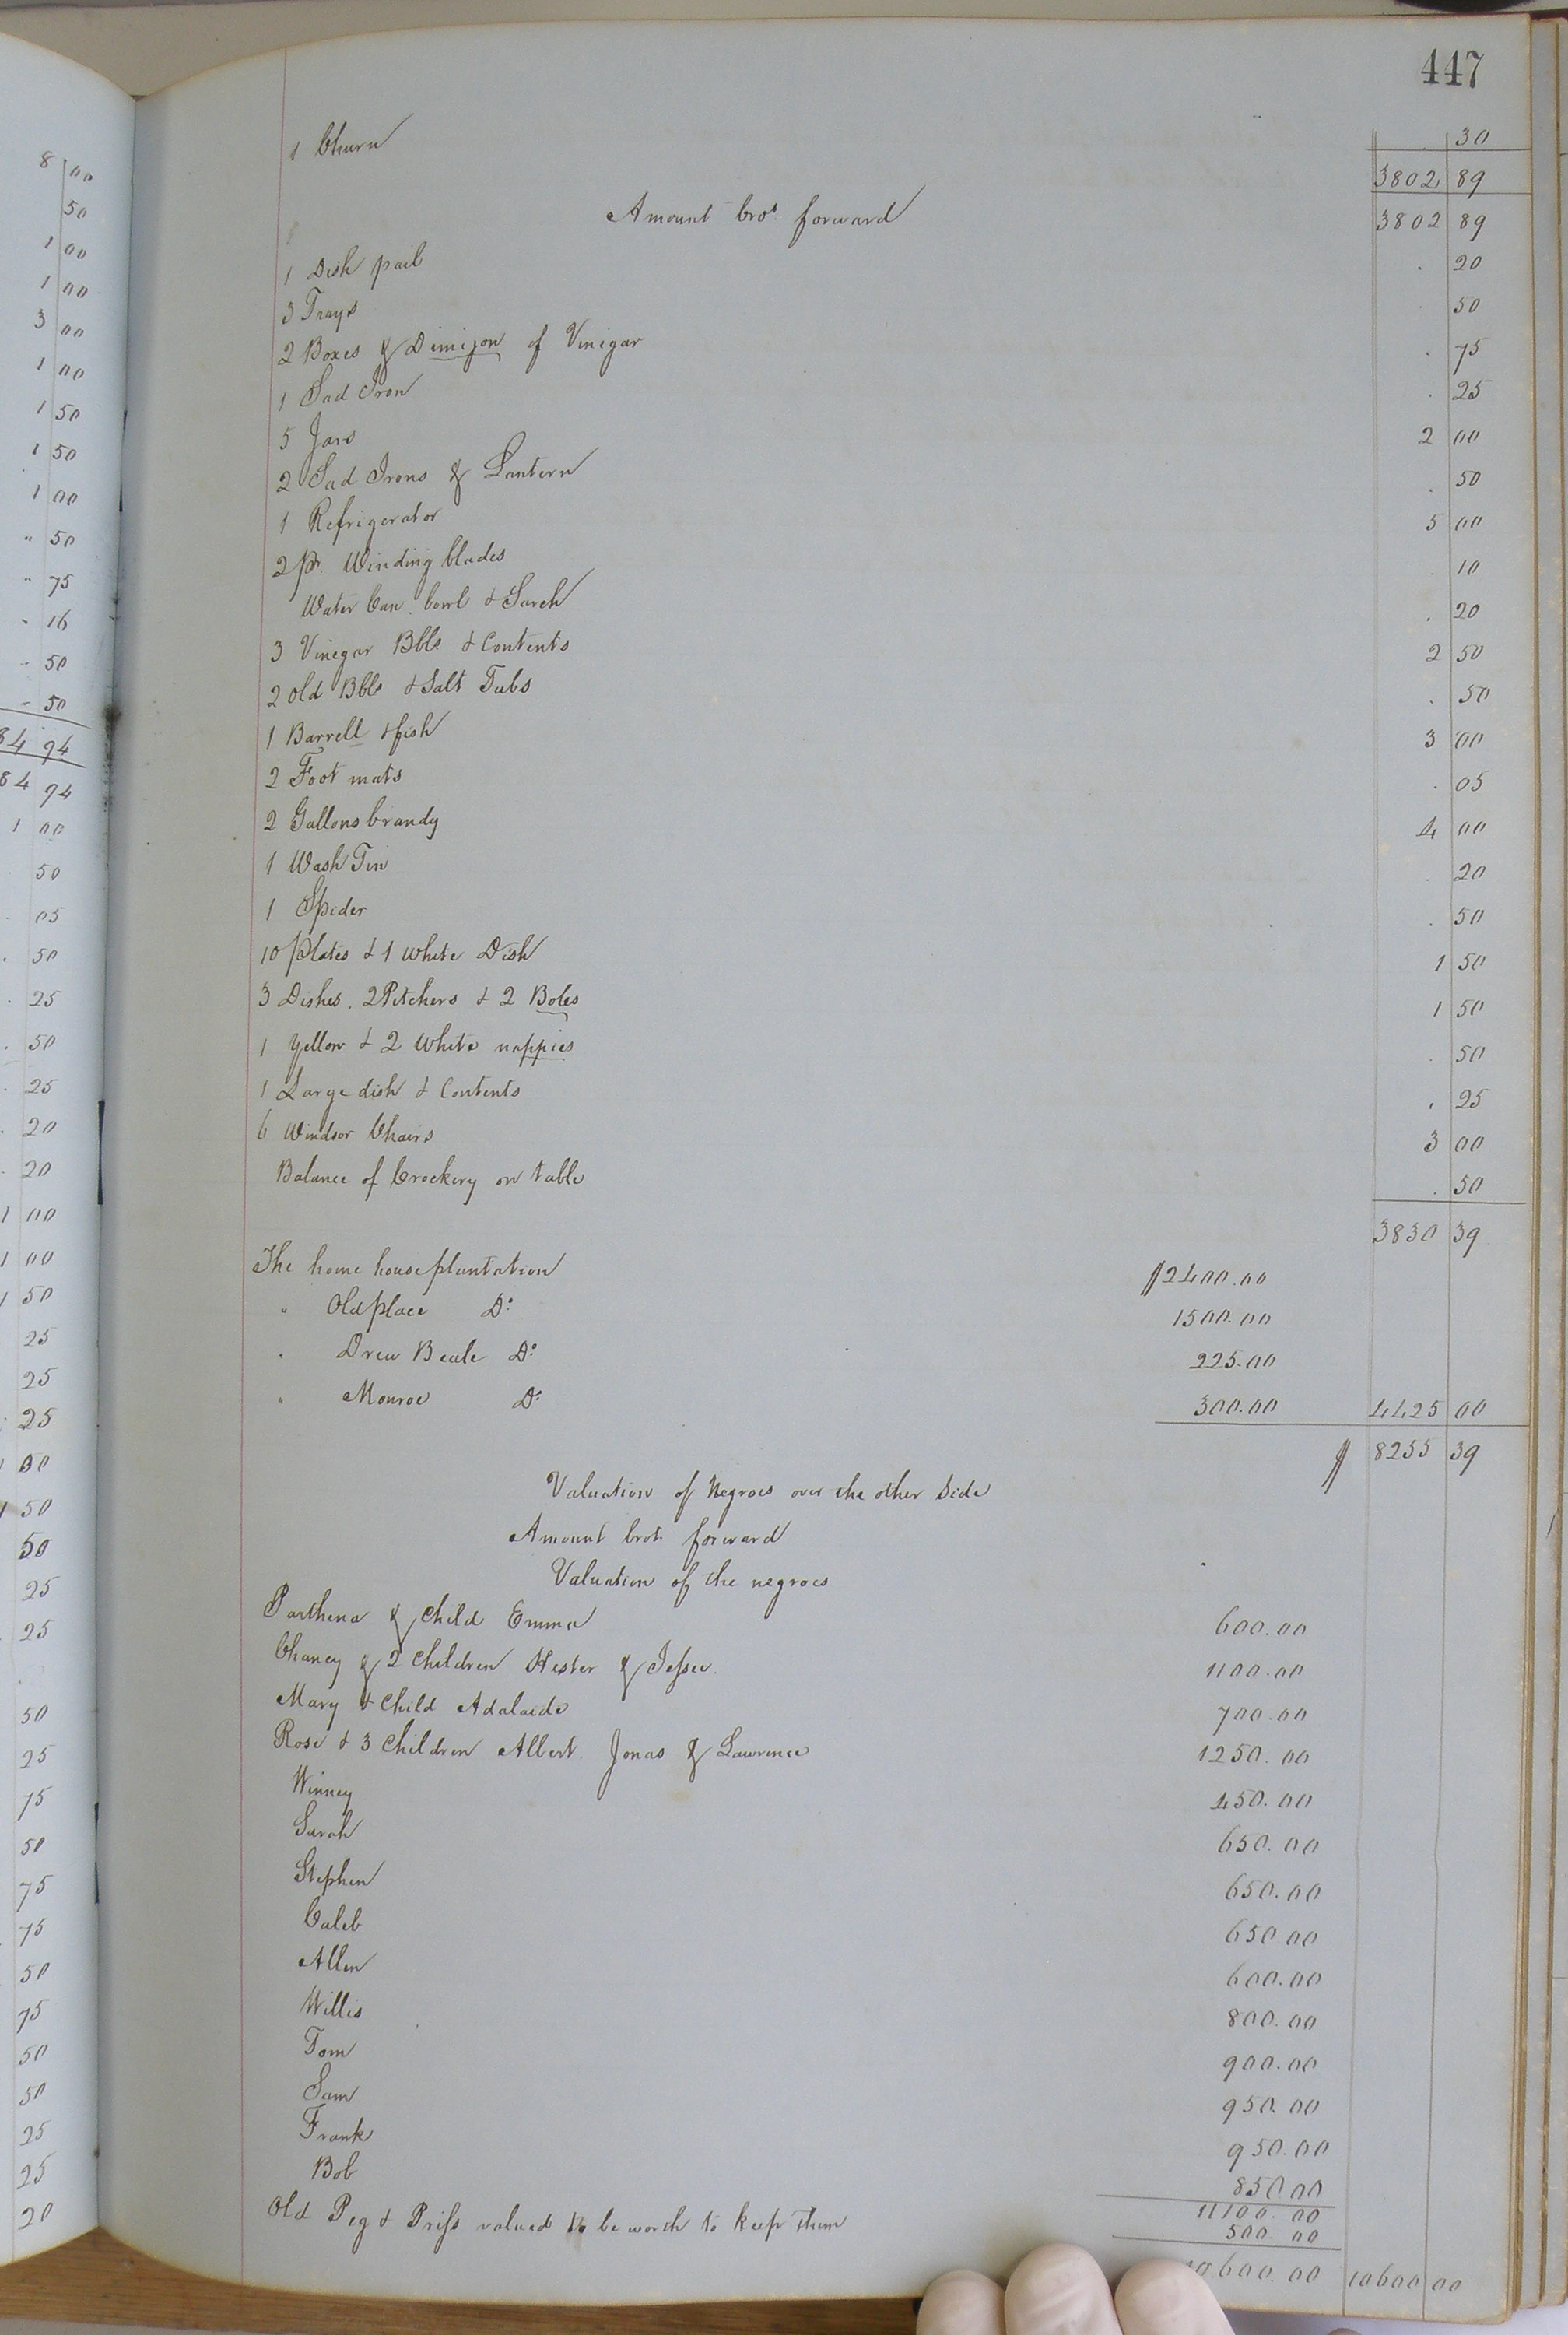 447
1 Churn . 30
3802 89
Amount brot. forward 3802 89
1 Dish pail . 20
3 Trays . 50
2 Boxes & Dimijon of Vinegar . 75
1 Sad Iron . 25
5 Jars 2 00
2 Sad Irons & Lantern . 50
1 Refrigerator 5 00
2 pr. Winding blades . 10
Water Can. bowl & Sarch . 20
3 Vinegar Bbls & Contents 2 50
2 old Bbls & Salt Tubs . 50
1 Barrell & fish 3 00
2 Foot mats . 05
2 Gallons brandy 4 00
1 Wash Tin . 20
1 Spider . 50
10 Plates & 1 white Dish 1 50
3 Dishes. 2 Pitchers & 2 Boles 1 50
1 Yellow & 2 White nappies . 50
1 Large dish & Contents . 25
6 Windsor Chairs 3 00
Balance of Crockery on table . 50
3830 39
The home house plantation $2400.00
" Old place Do. 1500.00
" Drew Beale Do. 225.00
" Monroe Do. 300.00 4425 00
$ 8255 39
Valuation of Negroes over the other Side
Amount brot. forward
Valuation of the negroes
Parthena & Child Emma 600.00
Chaney & 2 Children Hester & Jesse. 1100.00
Mary & Child Adalaide 700.00
Rose & 3 Children Albert. Jonas & Lawrence 1250.00
Winney 450.00
Sarah 650.00
Stephen 650.00
Caleb 650 00
Allen 600.00
Willis 800.00
Tom 900.00
Sam 950.00
Frank 950.00
Bob 850.00
11100.00
Old Peg & Priss valued to be worth to keep them 500 00
10.600.00 10600 00
8 00
50
1 00
1 00
3 00
1 00
1 50
1 50
1 00
" 50
" 75
- 16
- 50
- 50
84 94
84 94
1 00
50
. 05
. 50
. 25
. 50
. 25
. 20
. 20
1 00
1 00
1 50
25
25
. 25
50
50
25
25
50
25
75
50
75
75
50
75
50
50
25
25
20